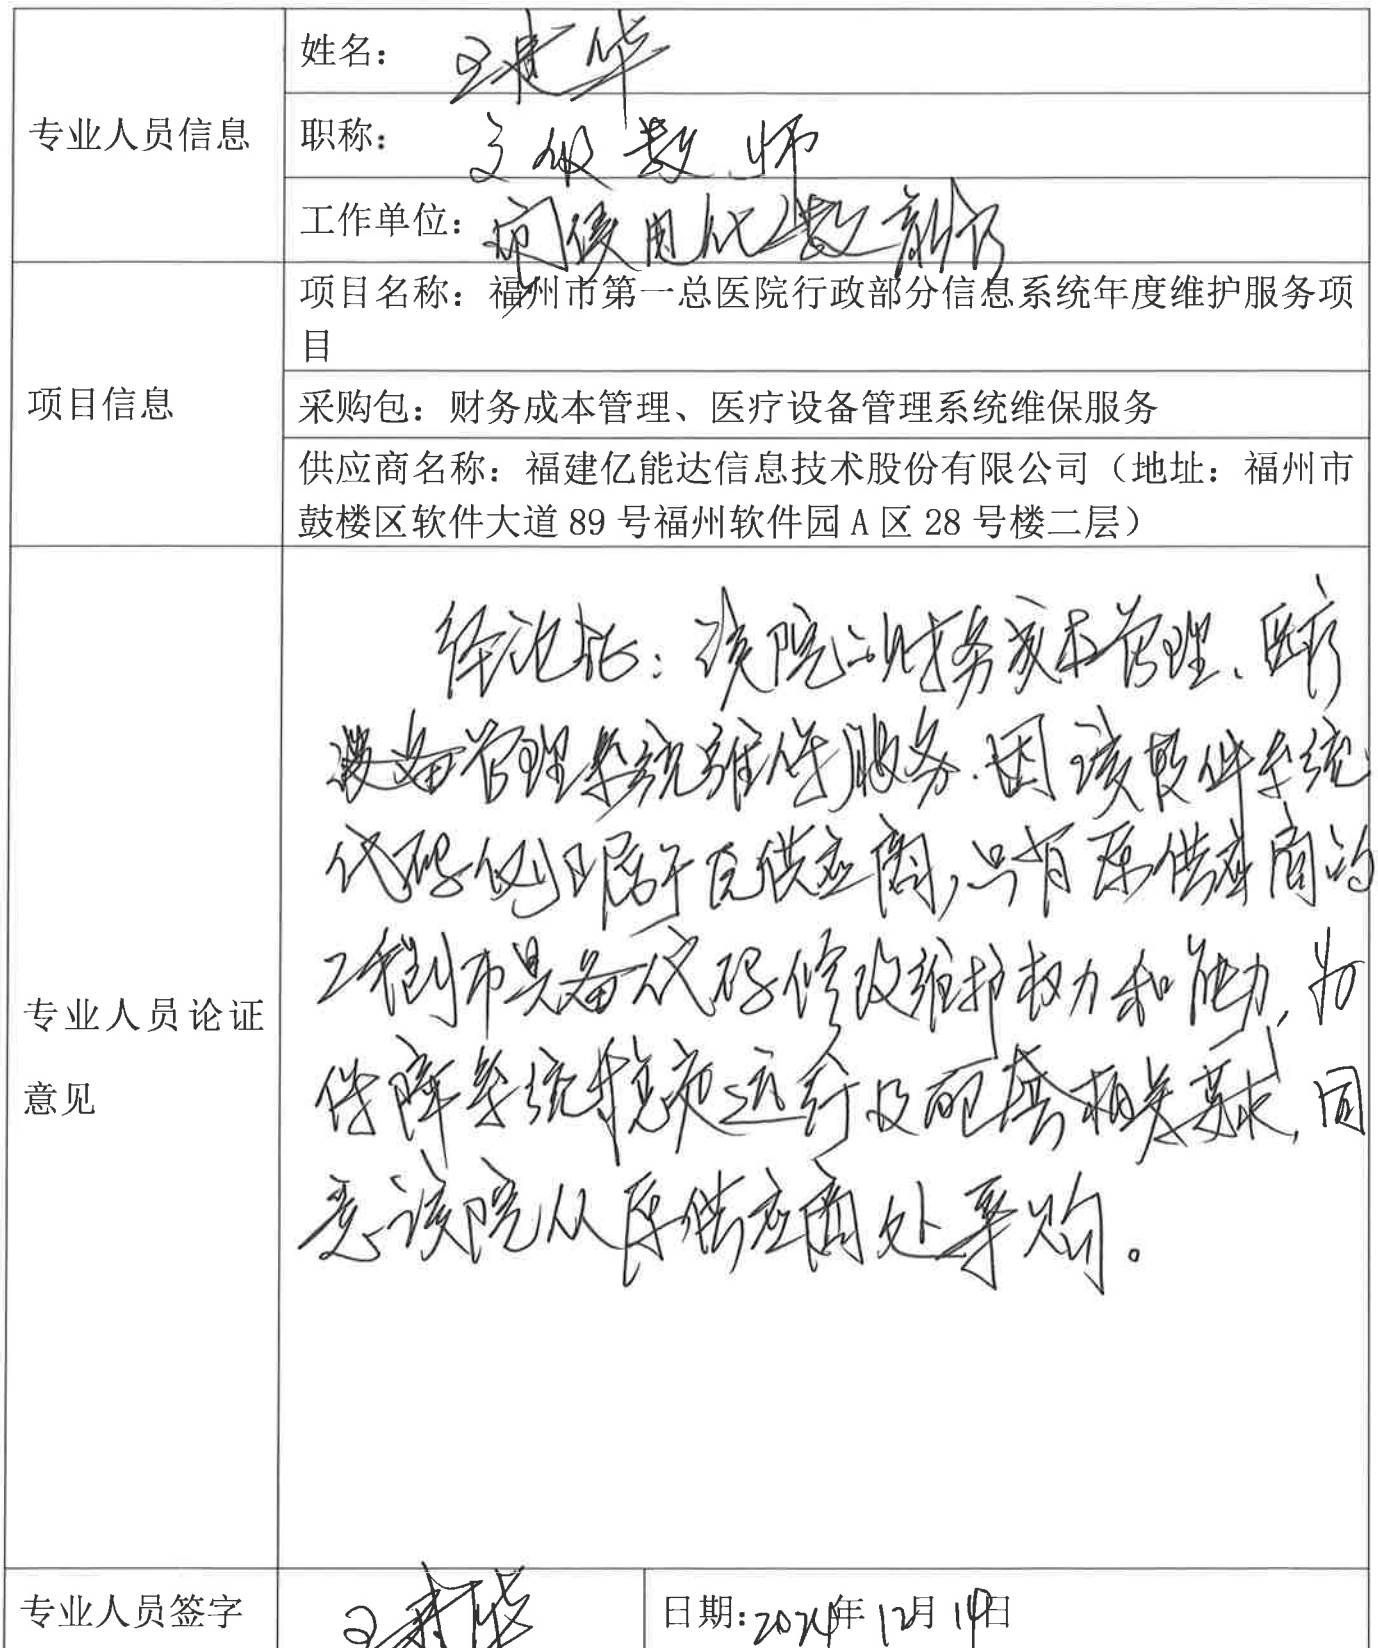 专业人员信息
姓名：王建华
职称：高级教师
工作单位：闽侯电化教育
项目信息
项目名称：福州市第一总医院行政部分信息系统年度维护服务项
目
采购包：财务成本管理、医疗设备管理系统维保服务
供应商名称：福建亿能达信息技术股份有限公司（地址：福州市
鼓楼区软件大道 89 号福州软件园 A 区 28 号楼二层）
专业人员论证
意见
经论证：该院的财务成本管理、医疗
设备管理系统维保服务.因该软件系统
代码归属于原供应商,只有原供应商的
工程师具备代码修改维护权力和能力,为
保障系统稳定运行及配套相关要求,同
意该院从原供应商处采购。
专业人员签字
王建华
日期:2024年12月14日